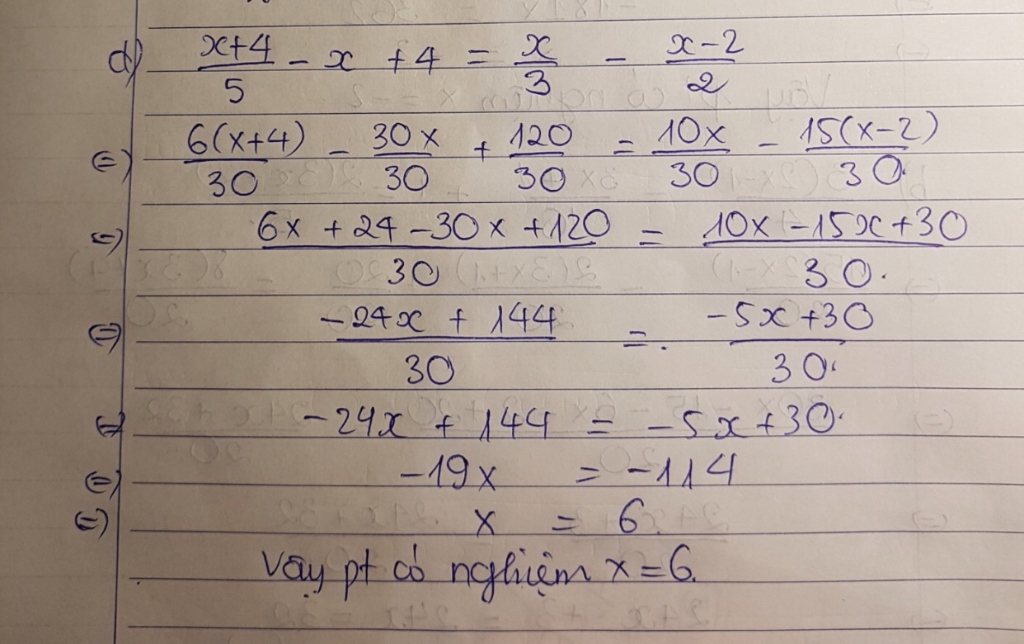 d) (x+4)/5 - x + 4 = x/3 - (x-2)/2
(=) 6(x+4)/30 - 30x/30 + 120/30 = 10x/30 - 15(x-2)/30
(=) (6x + 24 - 30x + 120)/30 = (10x - 15x + 30)/30.
(=) (-24x + 144)/30 = (-5x + 30)/30.
(=) -24x + 144 = -5x + 30.
(=) -19x = -114
(=) x = 6
Vậy pt có nghiệm x = 6.